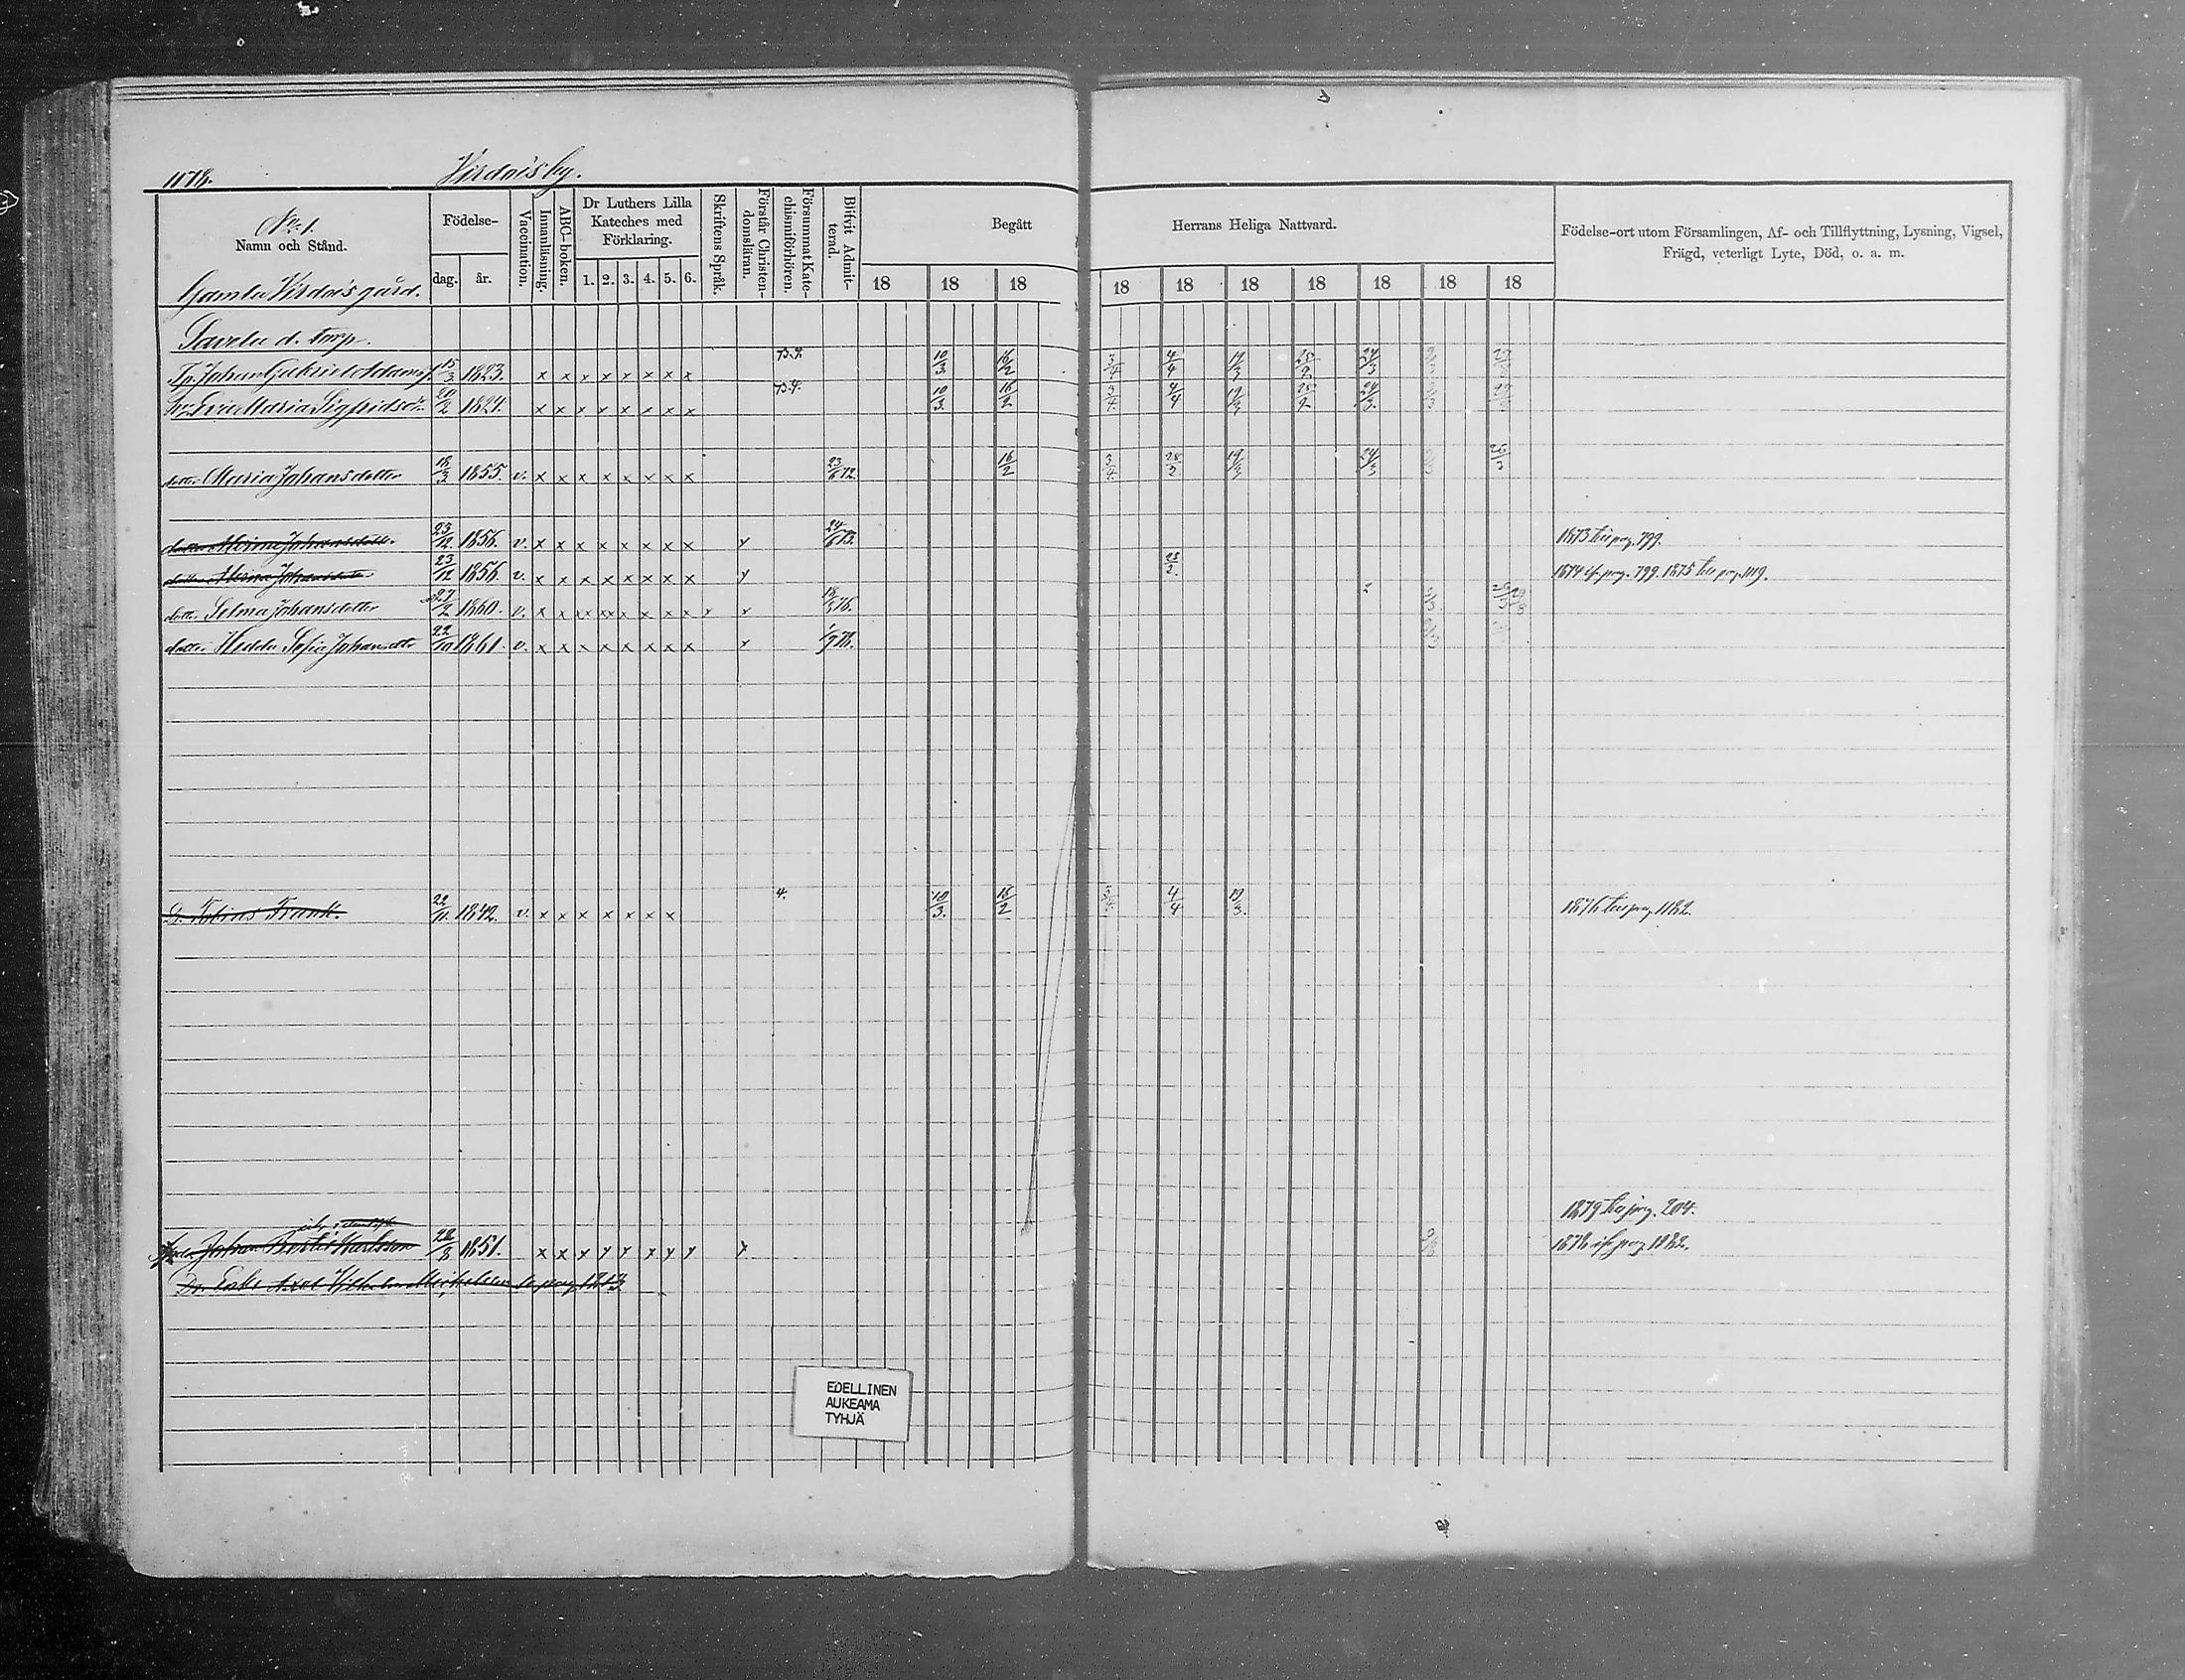 1178.
Virdois by.
No. 1.
Namn och Stånd.
Födelse-
dag.
år.
Vaccination.
Innanläsning.
ABC-boken.
Dr Luthers Lilla
Kateches med
Förklaring.
1. 2. 3. 4. 5. 6.
Skriftens Språk.
Förstår Christen-
domsläran.
Försummat Kate-
chismiförhören.
Blifvit Admit-
terad.
Begått
Herrans Heliga Nattvard.
18 18 18 18 18 18 18 18 18 18
Födelse-ort utom Församlingen, Af- och Tillflyttning, Lysning, Vigsel,
Frägd, veterligt Lyte, Död, o. a. m.
Gamla Virdois gård.
Savela d. torp
Tp. Johan Gabriel Adamsf. 15/3 1823. x x x x x x x x 10/3 16/2 3/4 4/4 19/3 25/2 24/3
Eva Maria Sigfridsd. 20/2 1824. x x x x x x x x 10/3. 16/2 3/4. 4/4 19/3 25/2 24/3.
dotter Maria Johansdotter 18/3 1855. v. x x x x x x x x 23/6 72. 16/2 3/4. 28/2 19/3 24/3
dotter Johansdott. 23/12 1856. v. x x x x x x x x 24/6 73. 1873 till pag. 799.
dotter Johansdotter 23/12 1856. v. x x x x x x x x 28/2. 1874 ifr. pag. 799. 1875 till pag. 1119.
dotter Selma Johansdotter 27/2 1860. v. x x x x x x x x 18/3 76.
dotter Hedda Sofia Johansdtr 22/10 1861. v. x x x x x x x x 1/9 78.
D. Tobias Frank. 22/11. 1842. v. x x x x x x x 4. 10/3. 18/2 3/4. 4/4 19/3. 1876 till pag. 1182.
1879 till pag. 204.
Johan Karlsson 22/3 1851. x x x 1878 ifr pag 1182.
Dr. Axel Vilhelm pag. 1213.
EDELLINEN
AUKEAMA
TYHJÄ